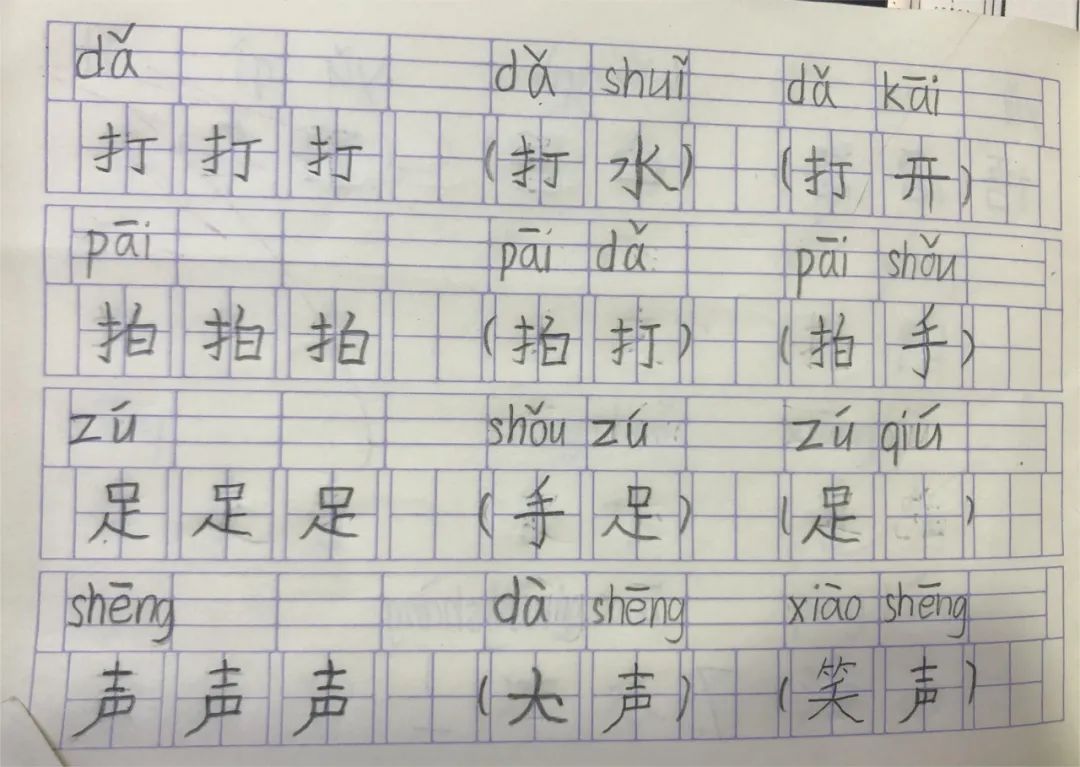 dǎ dǎ shuǐ dǎ kāi
打 打 打 (打 水) (打 开)
pāi pāi dǎ pāi shǒu
拍 拍 拍 (拍 打) (拍 手)
zú shǒu zú zú qiú
足 足 足 (手 足) (足 )
shēng dà shēng xiào shēng
声 声 声 (大 声) (笑 声)